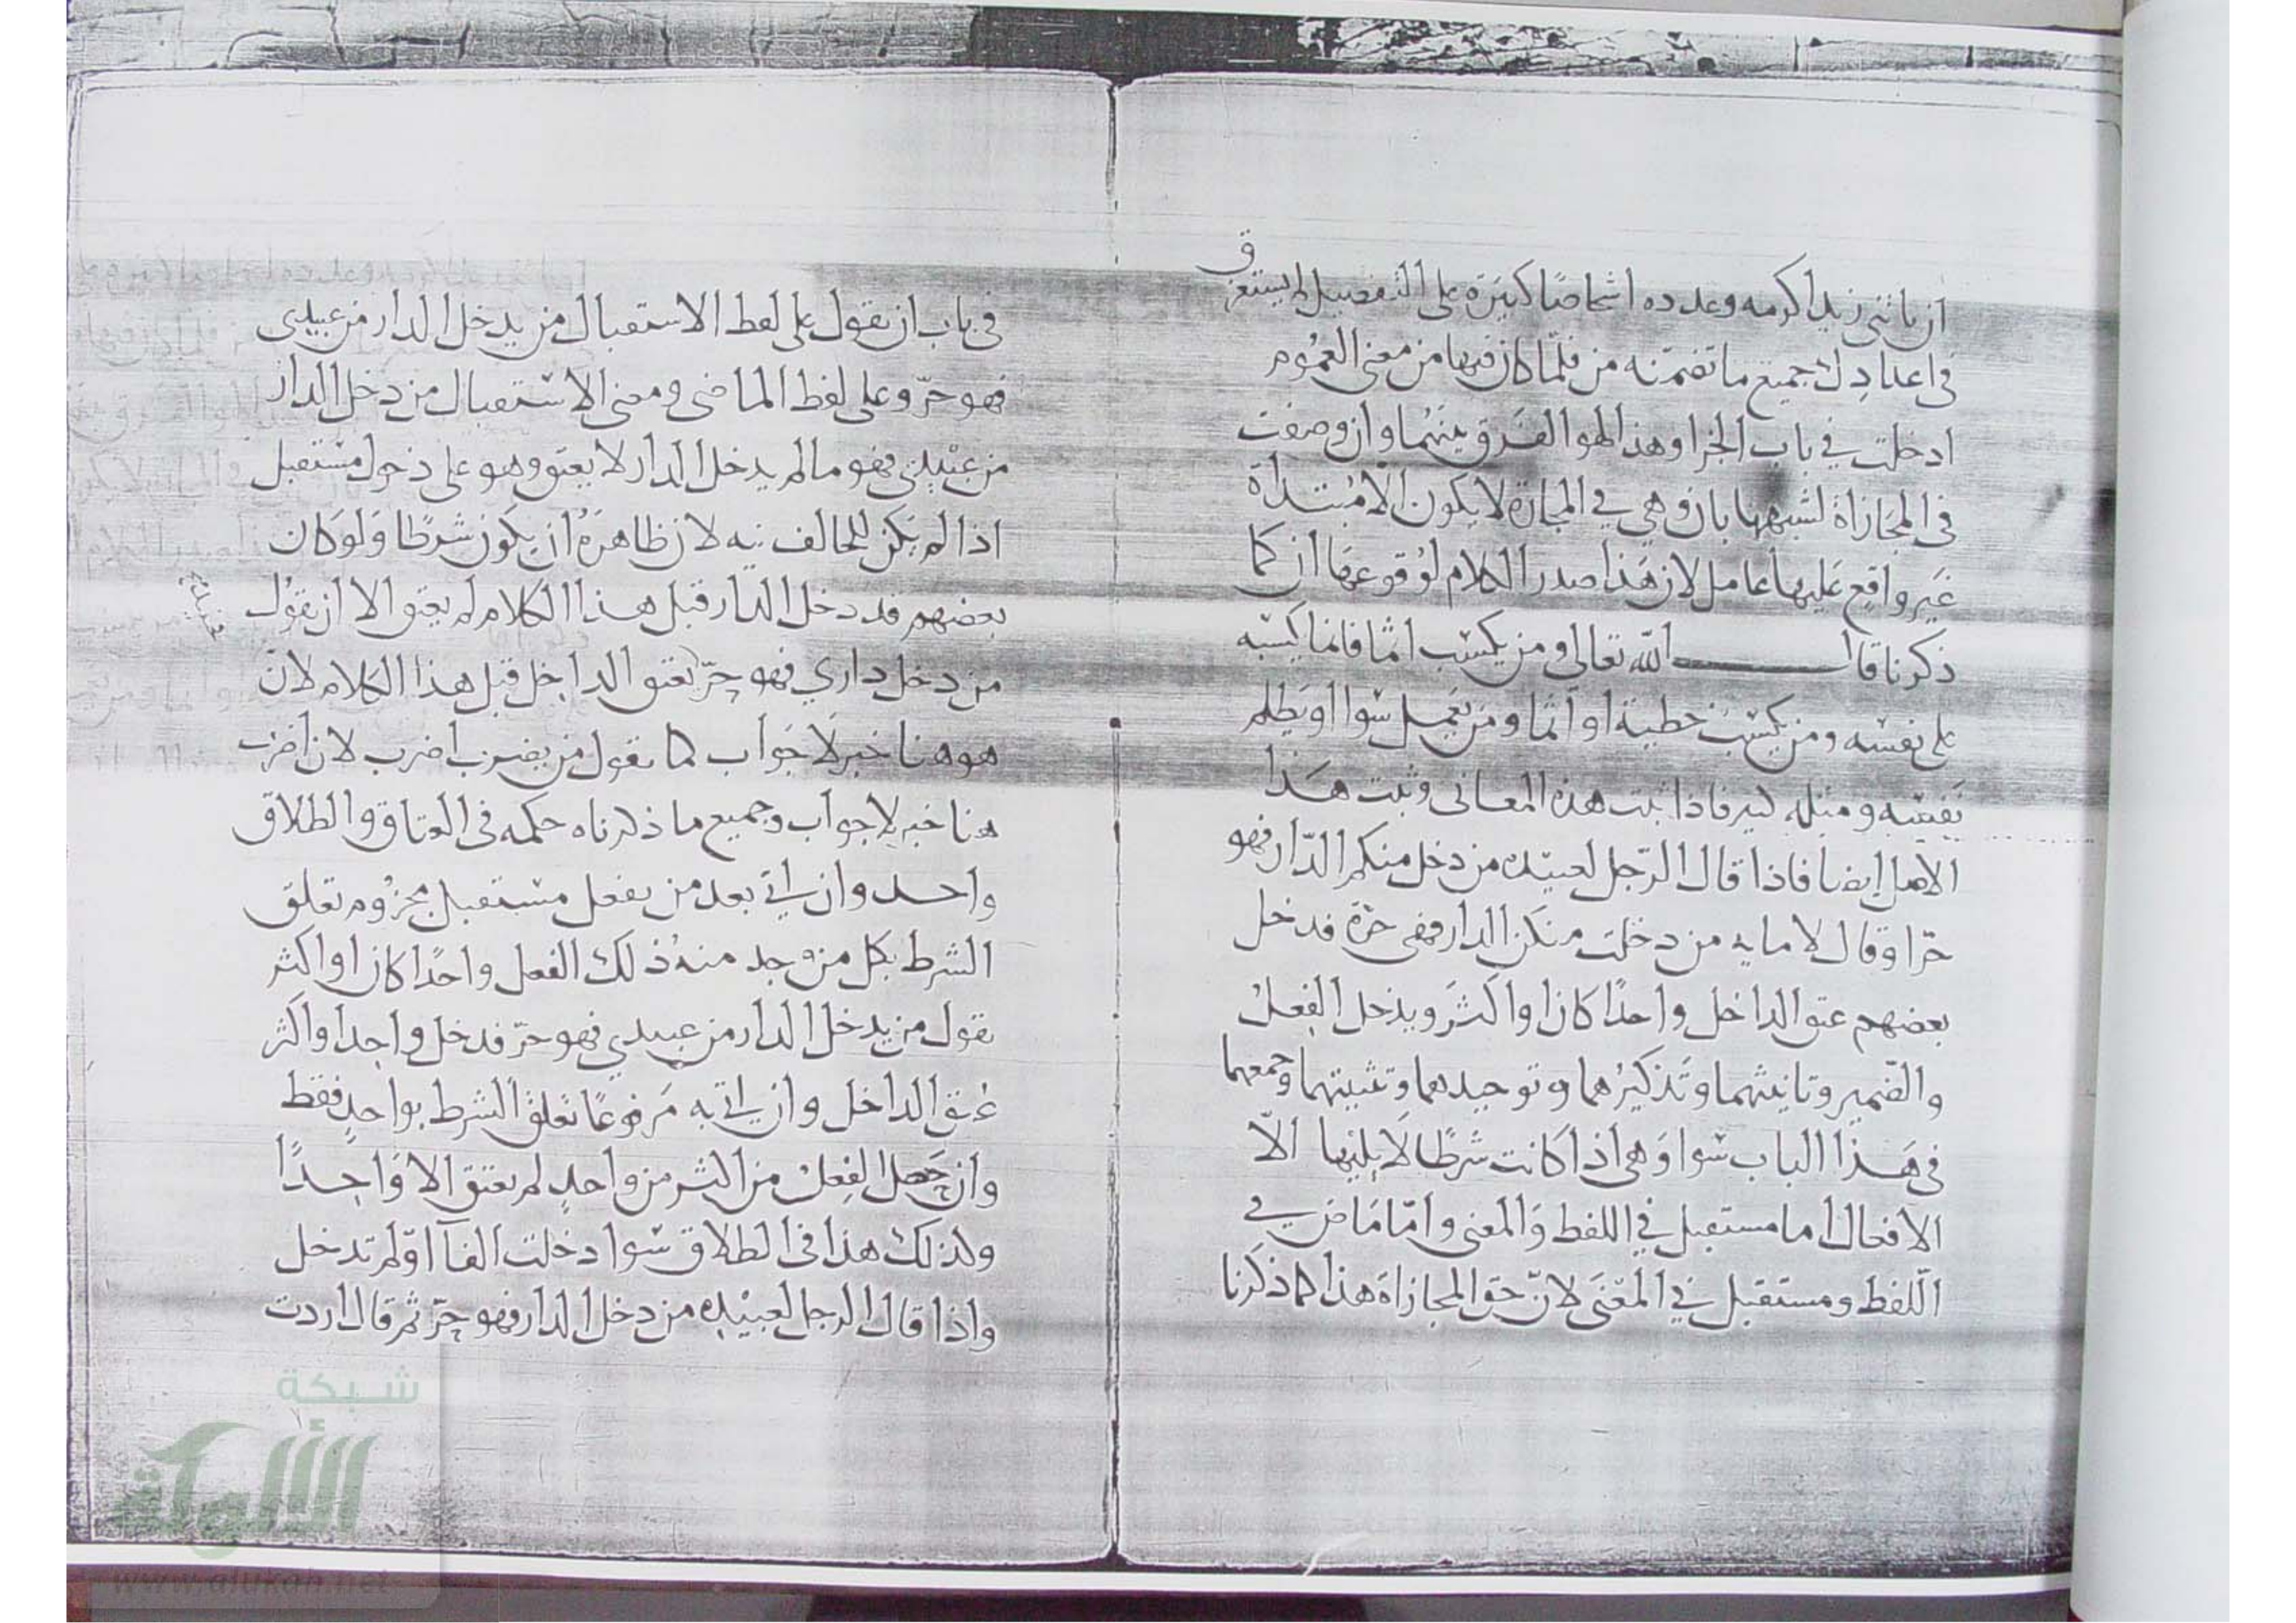 ان ياتني زيد اكرمه وعدده اشخاصا كثيرة على التفصيل لم يستغرق
في اعدادك جميع ما تضمنه من فلما كان فيها من معنى العموم
ادخلت في باب الجزا وهذا هو الفرق بينهما وان وضعت
في المجازاة لشبهها بان وهي في المجازاة لا يكون الا مبتداة
غير واقع عليها عامل لان هذا صدر الكلام لوقوعها ان كما
ذكرنا قال الله تعالى ومن يكسب اثما فانما يكسبه
على نفسه ومن يكسب خطية او اثما ومن يعمل سوا او يظلم
نفسه ومثله كثير فاذا ثبت هذه المعاني وثبت هذا
الاصل ايضا فاذا قال الرجل لعبيده من دخل منكم الدار فهو
حر او قال لامايه من دخلت منكن الدار فهي حرة فدخل
بعضهم عتق الداخل واحدا كان او اكثر ويدخل الفعل
والضمير وتانيثهما وتذكيرهما وتوحيدهما وتثنيتهما وجمعهما
في هذا الباب سوا وهي اذا كانت شرطا لا يليها الا
الافعال اما مستقبل في اللفظ والمعنى واما ماض في
اللفظ ومستقبل في المعنى لان حق المجازاة هذا كما ذكرنا
في باب ان تقول على لفظ الاستقبال من يدخل الدار من عبيدي
فهو حر وعلى لفظ الماضي ومعنى الاستقبال من دخل الدار
من عبيدي فهو ما لم يدخل الدار لا يعتق وهو على دخول مستقبل
اذا لم يكن للحالف نيه لان ظاهره ان يكون شرطا ولو كان
بعضهم قد دخل الدار قبل هذا الكلام لم يعتق الا ان تقول
من دخل داري فهو حر يعتق الداخل قبل هذا الكلام لان
هو هنا خبر لا جواب كما تقول من يضرب اضرب لان اضرب
هنا خبر لا جواب وجميع ما ذكرناه حكمه في العتاق والطلاق
واحد وان ياتي بعد من بفعل مستقبل مجزوم تعلق
الشرط بكل من وجد منه ذلك الفعل واحدا كان او اكثر
تقول من يدخل الدار من عبيدي فهو حر فدخل واحد او اكثر
عتق الداخل وان ياتي به مرفوعا تعلق الشرط بواحد فقط
وان حصل الفعل من اكثر من واحد لم يعتق الا واحدا
وكذلك هذا في الطلاق سوا دخلت الفا او لم تدخل
واذا قال الرجل لعبيده من دخل الدار فهو حر ثم قال اردت
شبكة
الألوكة
www.alukah.net